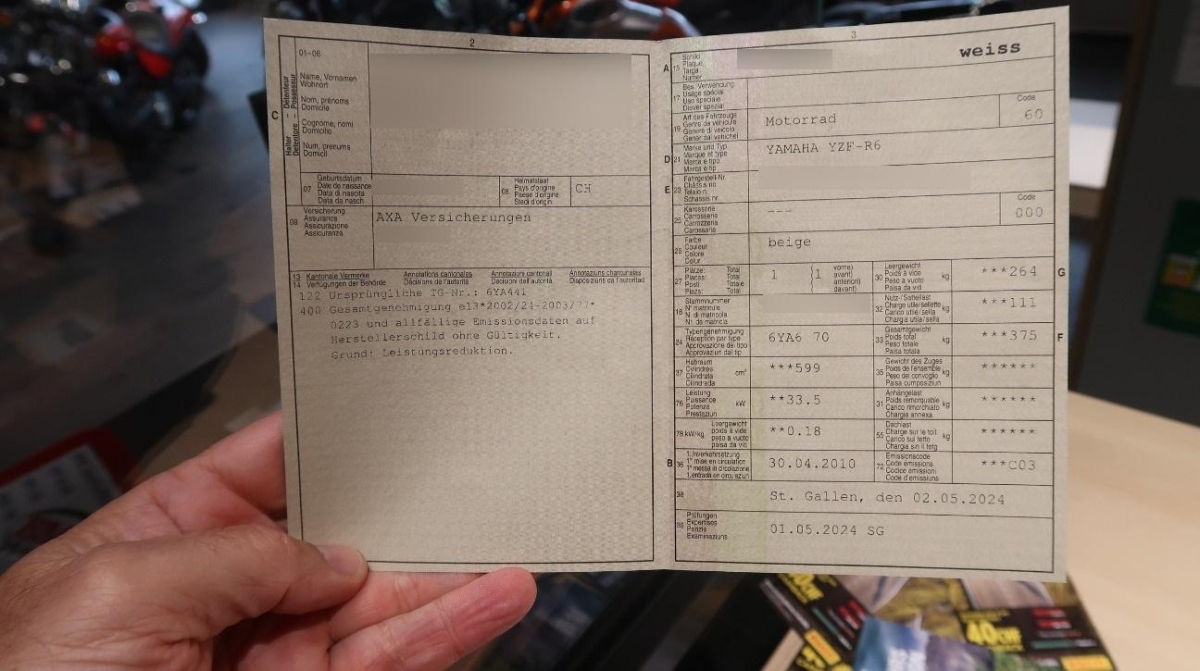 2
01-06
Name, Vornamen
Wohnort
Nom, prénoms
Domicile
Cognome, nomi
Domicilio
Num, prenums
Domicil
C
Halter – Détenteur
Detentore – Possessur
07
Geburtsdatum
Date de naissance
Data di nascita
Data da nasch.
08
Heimatstaat
Pays d'origine
Paese d'origine
Stadi d'origin
CH
09
Versicherung
Assurance
Assicurazione
Assicuranza
AXA Versicherungen
13
14
Kantonale Vermerke
Verfügungen der Behörde
Annotations cantonales
Décisions de l'autorité
Annotazioni cantonali
Decisioni dell'autorità
Annotaziuns chantunalas
Disposiziuns da l'autoritad
122 Ursprüngliche TG-Nr.: 6YA441
400 Gesamtgenehmigung e13*2002/24-2003/77*
0223 und allfällige Emissionsdaten auf
Herstellerschild ohne Gültigkeit.
Grund: Leistungsreduktion.
3
weiss
A
15
Schild
Plaque
Targa
Numer
17
Bes. Verwendung
Usage spécial
Uso speciale
Diever spezial
19
Art des Fahrzeugs
Genre de véhicule
Genere di veicolo
Gener dal vehichel
Motorrad
Code
60
D
21
Marke und Typ
Marque et type
Marca e tipo
Marca e tip
YAMAHA YZF-R6
E
23
Fahrgestell-Nr.
Châssis no
Telaio n.
Schassis nr.
25
Karosserie
Carrosserie
Carrozzeria
Carossaria
---
Code
000
26
Farbe
Couleur
Colore
Colur
beige
27
Plätze: Total
Places: Total
Posti: Totale
Plazs: Total
1
(1
vorne)
avant)
anteriori)
davant)
30
Leergewicht
Poids à vide
Peso a vuoto
Paisa da vid
kg
***264
G
18
Stammnummer
N° matricule
N. di matricola
Nr. da matricla
32
Nutz-/Sattellast
Charge utile/sellette
Carico utile/sella
Chargia utila/sella
kg
***111
24
Typengenehmigung
Réception par type
Approvazione del tipo
Approvaziun dal tip
6YA6 70
33
Gesamtgewicht
Poids total
Peso totale
Paisa totala
kg
***375
F
37
Hubraum
Cylindrée
Cilindrata
Cilindrada
cm³
***599
35
Gewicht des Zuges
Poids de l'ensemble
Peso del convoglio
Paisa cumposiziun
kg
******
76
Leistung
Puissance
Potenza
Prestaziun
kW
**33.5
31
Anhängelast
Poids remorquable
Carico rimorchiato
Chargia annexa
kg
******
78
kW/kg
Leergewicht
poids à vide
peso a vuoto
paisa da vid
**0.18
55
Dachlast
Charge sur le toit
Carico sul tetto
Chargia sin il tetg
kg
******
B
36
1. Inverkehrsetzung
1re mise en circulation
1a messa in circolazione
1. entrada en circulaziun
30.04.2010
72
Emissionscode
Code émissions
Codice emissioni
Code d'emissiuns
***C03
38
St. Gallen, den 02.05.2024
39
Prüfungen
Expertises
Perizie
Examinaziuns
01.05.2024 SG
40